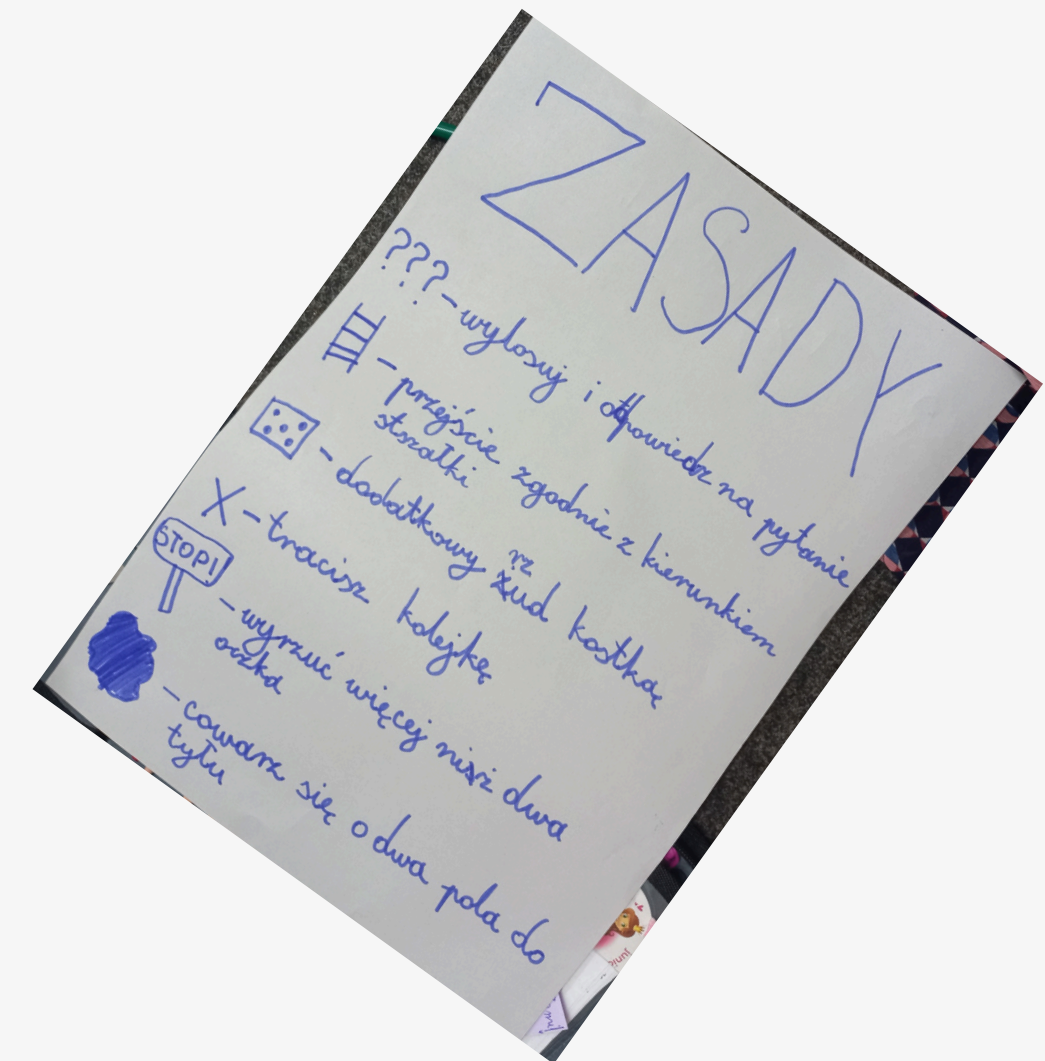 ZASADY
??? - wylosuj i odpowiedz na pytanie
- przejście zgodnie z kierunkiem
strzałki
- dodatkowy rzud kostką
X - tracisz kolejkę
STOP!
- wyrzuć więcej niż dwa
oczka
- cowasz się o dwa pola do
tyłu